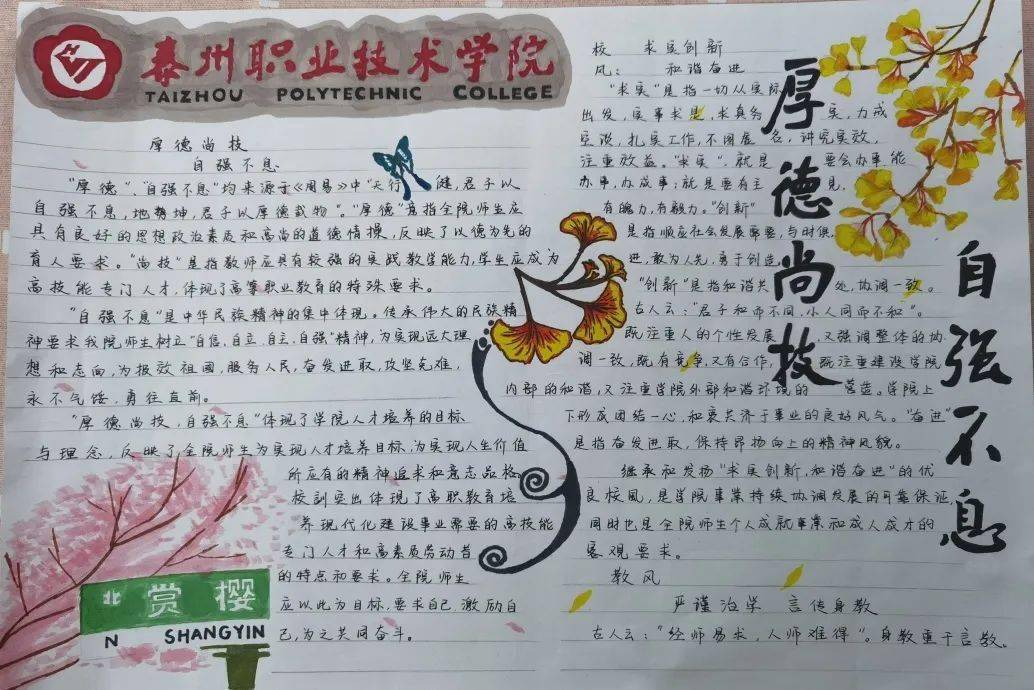 泰州职业技术学院
TAIZHOU POLYTECHNIC COLLEGE
厚德尚技
自强不息
"厚德"、"自强不息"均来源于《周易》中"天行健,君子以
自强不息,地势坤,君子以厚德载物"。"厚德"是指全院师生应
具有良好的思想政治素质和高尚的道德情操,反映了以德为先的
育人要求。"尚技"是指教师应具有较强的实践教学能力,学生应成为
高技能专门人才,体现了高等职业教育的特殊要求。
"自强不息"是中华民族精神的集中体现。传承伟大的民族精
神要求我院师生树立"自信、自立、自主、自强"精神,为实现远大理
想和志向,为报效祖国,服务人民,奋发进取,攻坚克难,
永不气馁,勇往直前。
"厚德尚技,自强不息"体现了学院人才培养的目标
与理念,反映了全院师生为实现人才培养目标,为实现人生价值
所应有的精神追求和意志品格,
校训突出体现了高职教育培
养现代化建设事业需要的高技能
专门人才和高素质劳动者
的特点和要求。全院师生
应以此为目标,要求自己,激励自
己,为之共同奋斗。
北 赏樱
N SHANGYIN
校 求实创新
风: 和谐奋进
"求实"是指一切从实际
出发,实事求是,求真务实,力戒
空谈,扎实工作,不图虚名,讲究实效,
注重效益。"求实",就是要会办事,能
办事,办成事;就是要有主见,
有魄力,有毅力。"创新"
是指顺应社会发展需要,与时俱
进,敢为人先,勇于创造。
"创新"是指和谐共处,协调一致。
古人云:"君子和而不同,小人同而不和"。
既注重人的个性发展,又强调整体的协
调一致,既有竞争,又有合作,既注重建设学院
内部的和谐,又注重学院外部和谐环境的营造。学院上
下形成团结一心,和衷共济干事业的良好风气。"奋进"
是指奋发进取,保持昂扬向上的精神风貌。
继承和发扬"求实创新,和谐奋进"的优
良校風,是学院事業持续协调发展的可靠保证,
同时也是全院师生个人成就事業和成人成才的
客观要求。
教风
严谨治学 言传身教
古人云:"经师易求,人师难得"。身教重于言教。
厚德尚技
自强不息